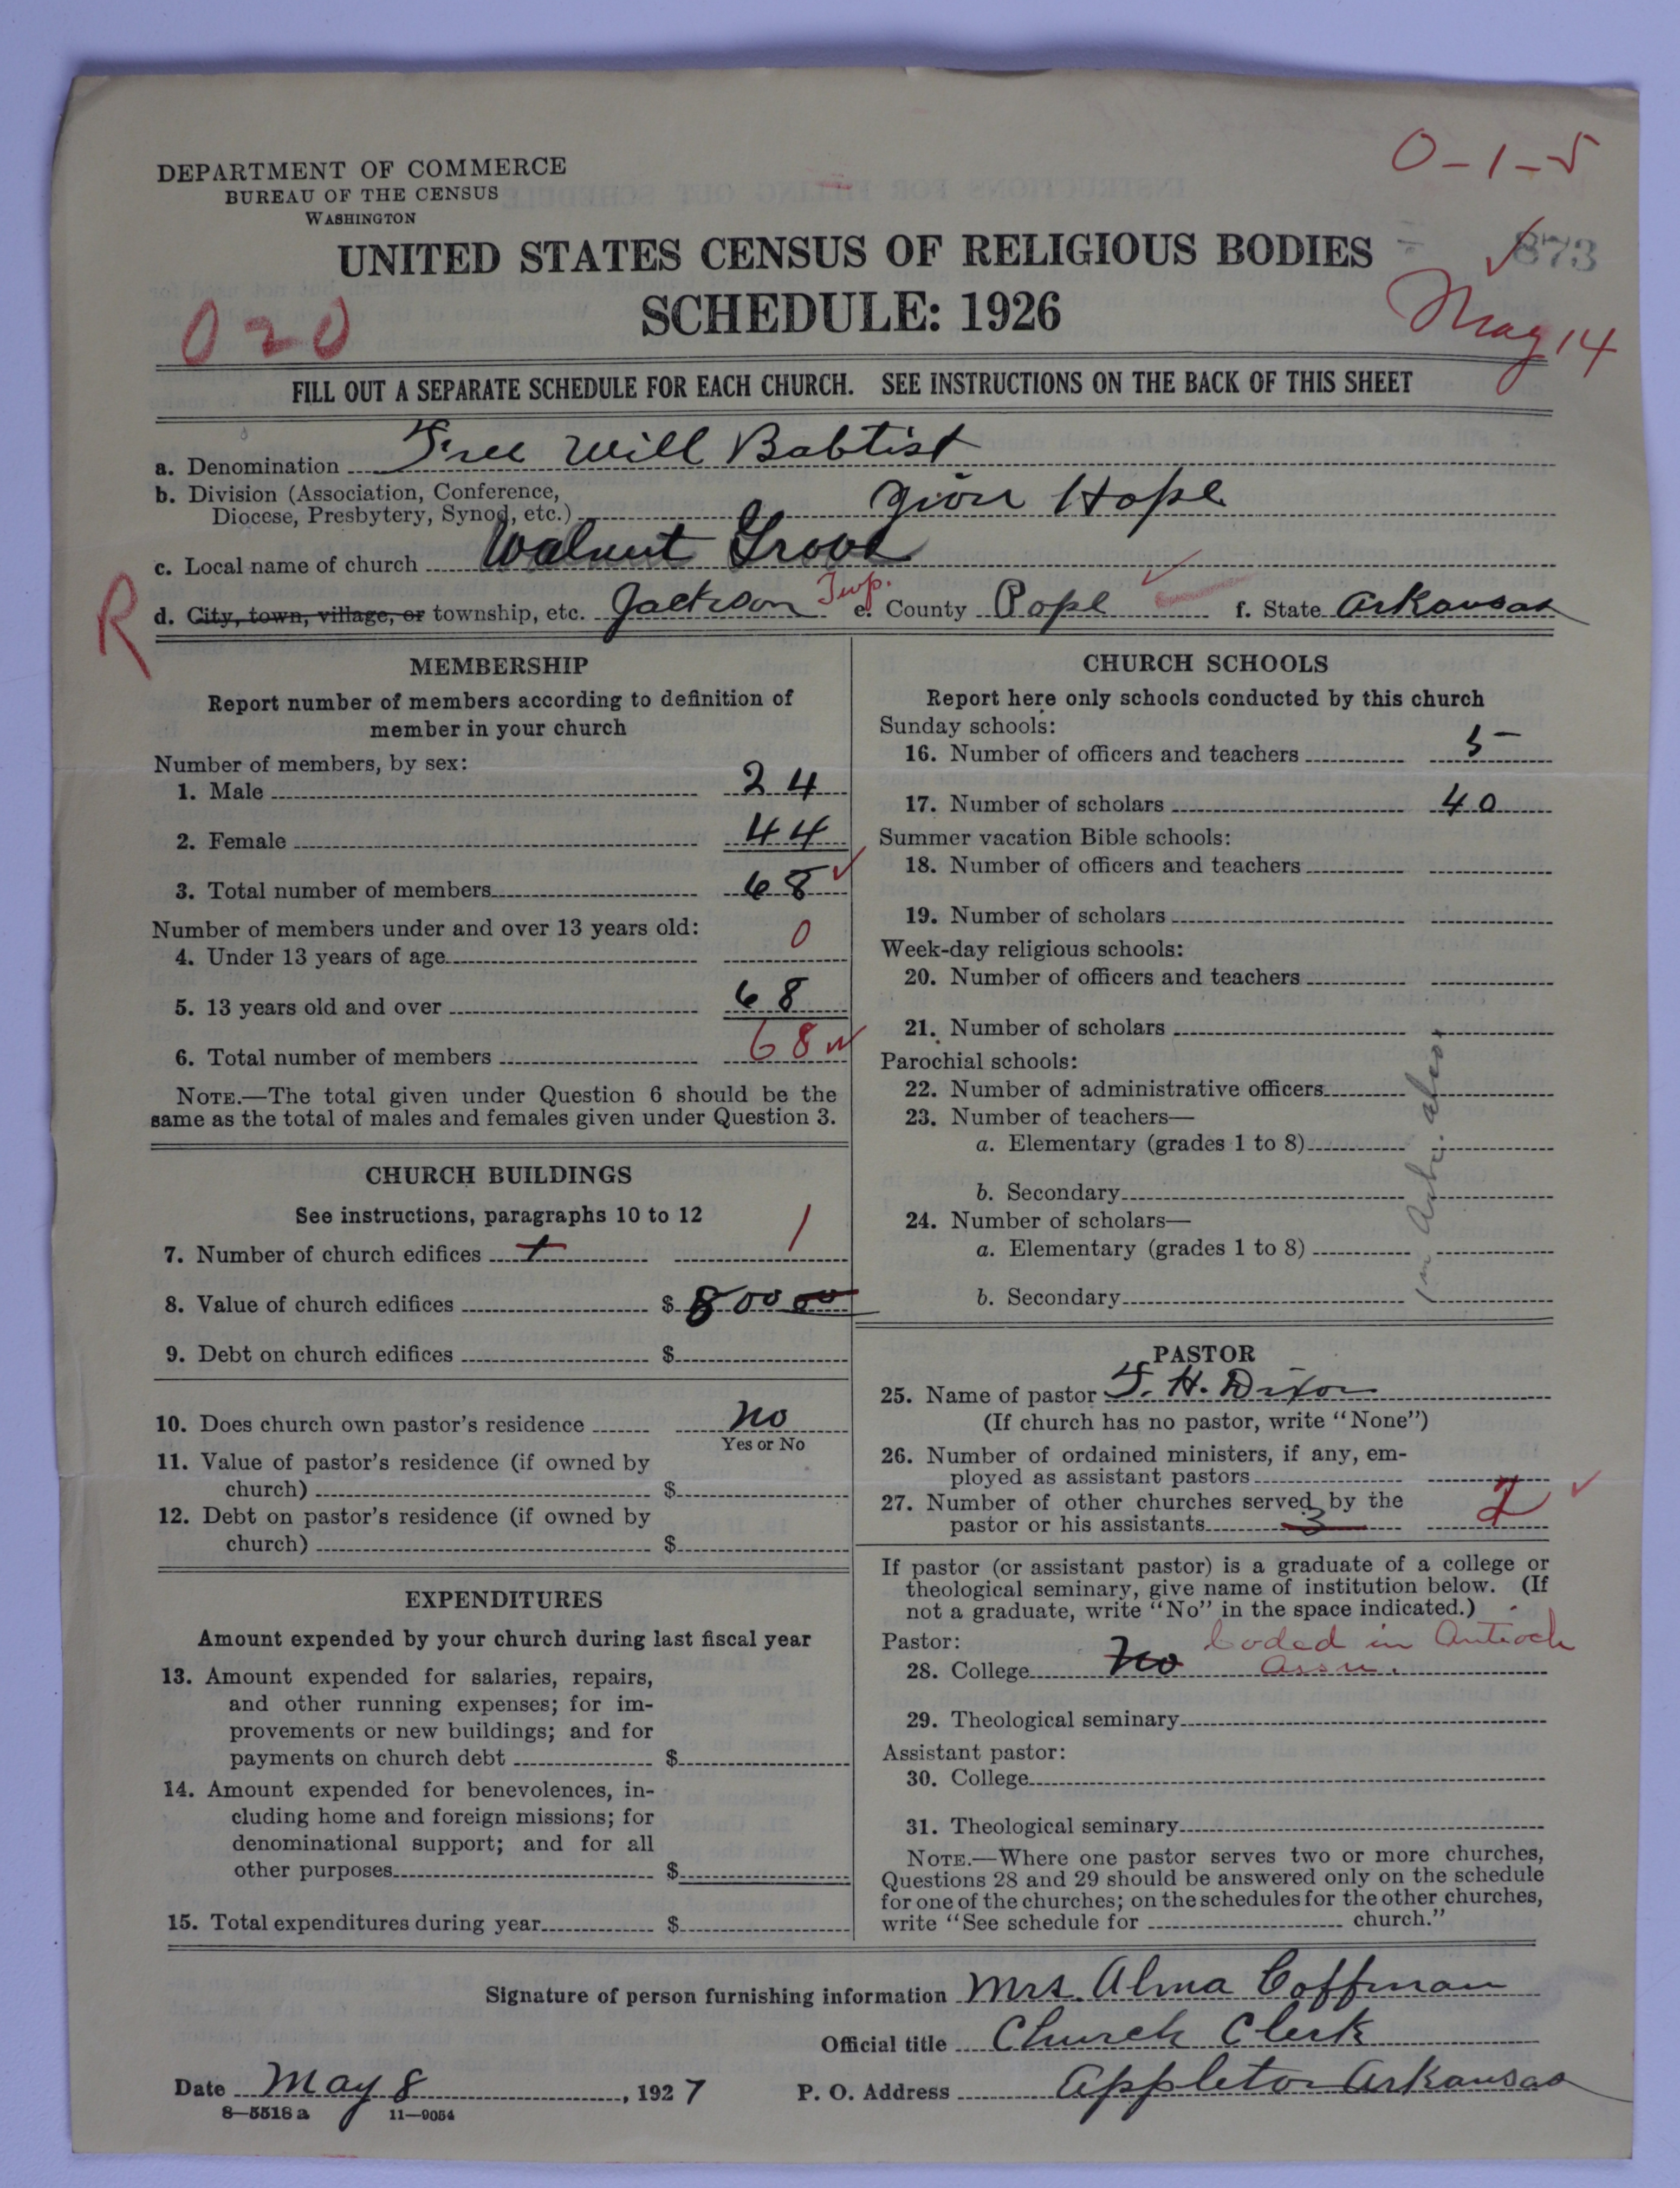 0-1-5
DEPARTMENT OF COMMERCE
BUREAU OF THE CENSUS
WASHINGTON
UNITED STATES CENSUS OF RELIGIOUS BODIES
873
SCHEDULE: 1926
020
May 14
FILL OUT A SEPARATE SCHEDULE FOR EACH CHURCH. SEE INSTRUCTIONS ON THE BACK OF THIS SHEET
a. Denomination Free Will Babtist
b. Division (Association, Conference,
Diocese, Presbytery, Synod, etc.) Zion Hope
c. Local name of church Walnut Grove
R
d. City, town, village, or township, etc. Jackson Twp. e. County Pope f. State Arkansas
MEMBERSHIP
Report number of members according to definition of
member in your church
Number of members, by sex:
1. Male 24
2. Female 44
3. Total number of members 68
Number of members under and over 13 years old:
4. Under 13 years of age 0
5. 13 years old and over 68
6. Total number of members 68
NOTE.—The total given under Question 6 should be the
same as the total of males and females given under Question 3.
CHURCH BUILDINGS
See instructions, paragraphs 10 to 12
7. Number of church edifices 1 1
8. Value of church edifices $ 800 00
9. Debt on church edifices $
10. Does church own pastor's residence no
Yes or No
11. Value of pastor's residence (if owned by
church) $
12. Debt on pastor's residence (if owned by
church) $
EXPENDITURES
Amount expended by your church during last fiscal year
13. Amount expended for salaries, repairs,
and other running expenses; for im-
provements or new buildings; and for
payments on church debt $
14. Amount expended for benevolences, in-
cluding home and foreign missions; for
denominational support; and for all
other purposes $
15. Total expenditures during year $
CHURCH SCHOOLS
Report here only schools conducted by this church
Sunday schools:
16. Number of officers and teachers 5
17. Number of scholars 40
Summer vacation Bible schools:
18. Number of officers and teachers
19. Number of scholars
Week-day religious schools:
20. Number of officers and teachers
21. Number of scholars
Parochial schools:
22. Number of administrative officers
23. Number of teachers—
a. Elementary (grades 1 to 8)
b. Secondary
24. Number of scholars—
a. Elementary (grades 1 to 8)
b. Secondary
PASTOR
25. Name of pastor T. H. Dixon
(If church has no pastor, write "None")
26. Number of ordained ministers, if any, em-
ployed as assistant pastors
27. Number of other churches served by the
pastor or his assistants 3 2
If pastor (or assistant pastor) is a graduate of a college or
theological seminary, give name of institution below. (If
not a graduate, write "No" in the space indicated.)
Pastor: Coded in Antioch
28. College No Assn.
29. Theological seminary
Assistant pastor:
30. College
31. Theological seminary
NOTE.—Where one pastor serves two or more churches,
Questions 28 and 29 should be answered only on the schedule
for one of the churches; on the schedules for the other churches,
write "See schedule for church."
Signature of person furnishing information Mrs. Alma Coffman
Official title Church Clerk
Date May 8, 1927 P. O. Address Appleton Arkansas
8—5518 a 11—9054